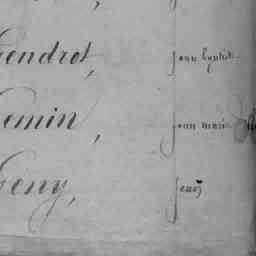 Gendrot, jean baptiste
Gemin, jean marie
Geny, jean